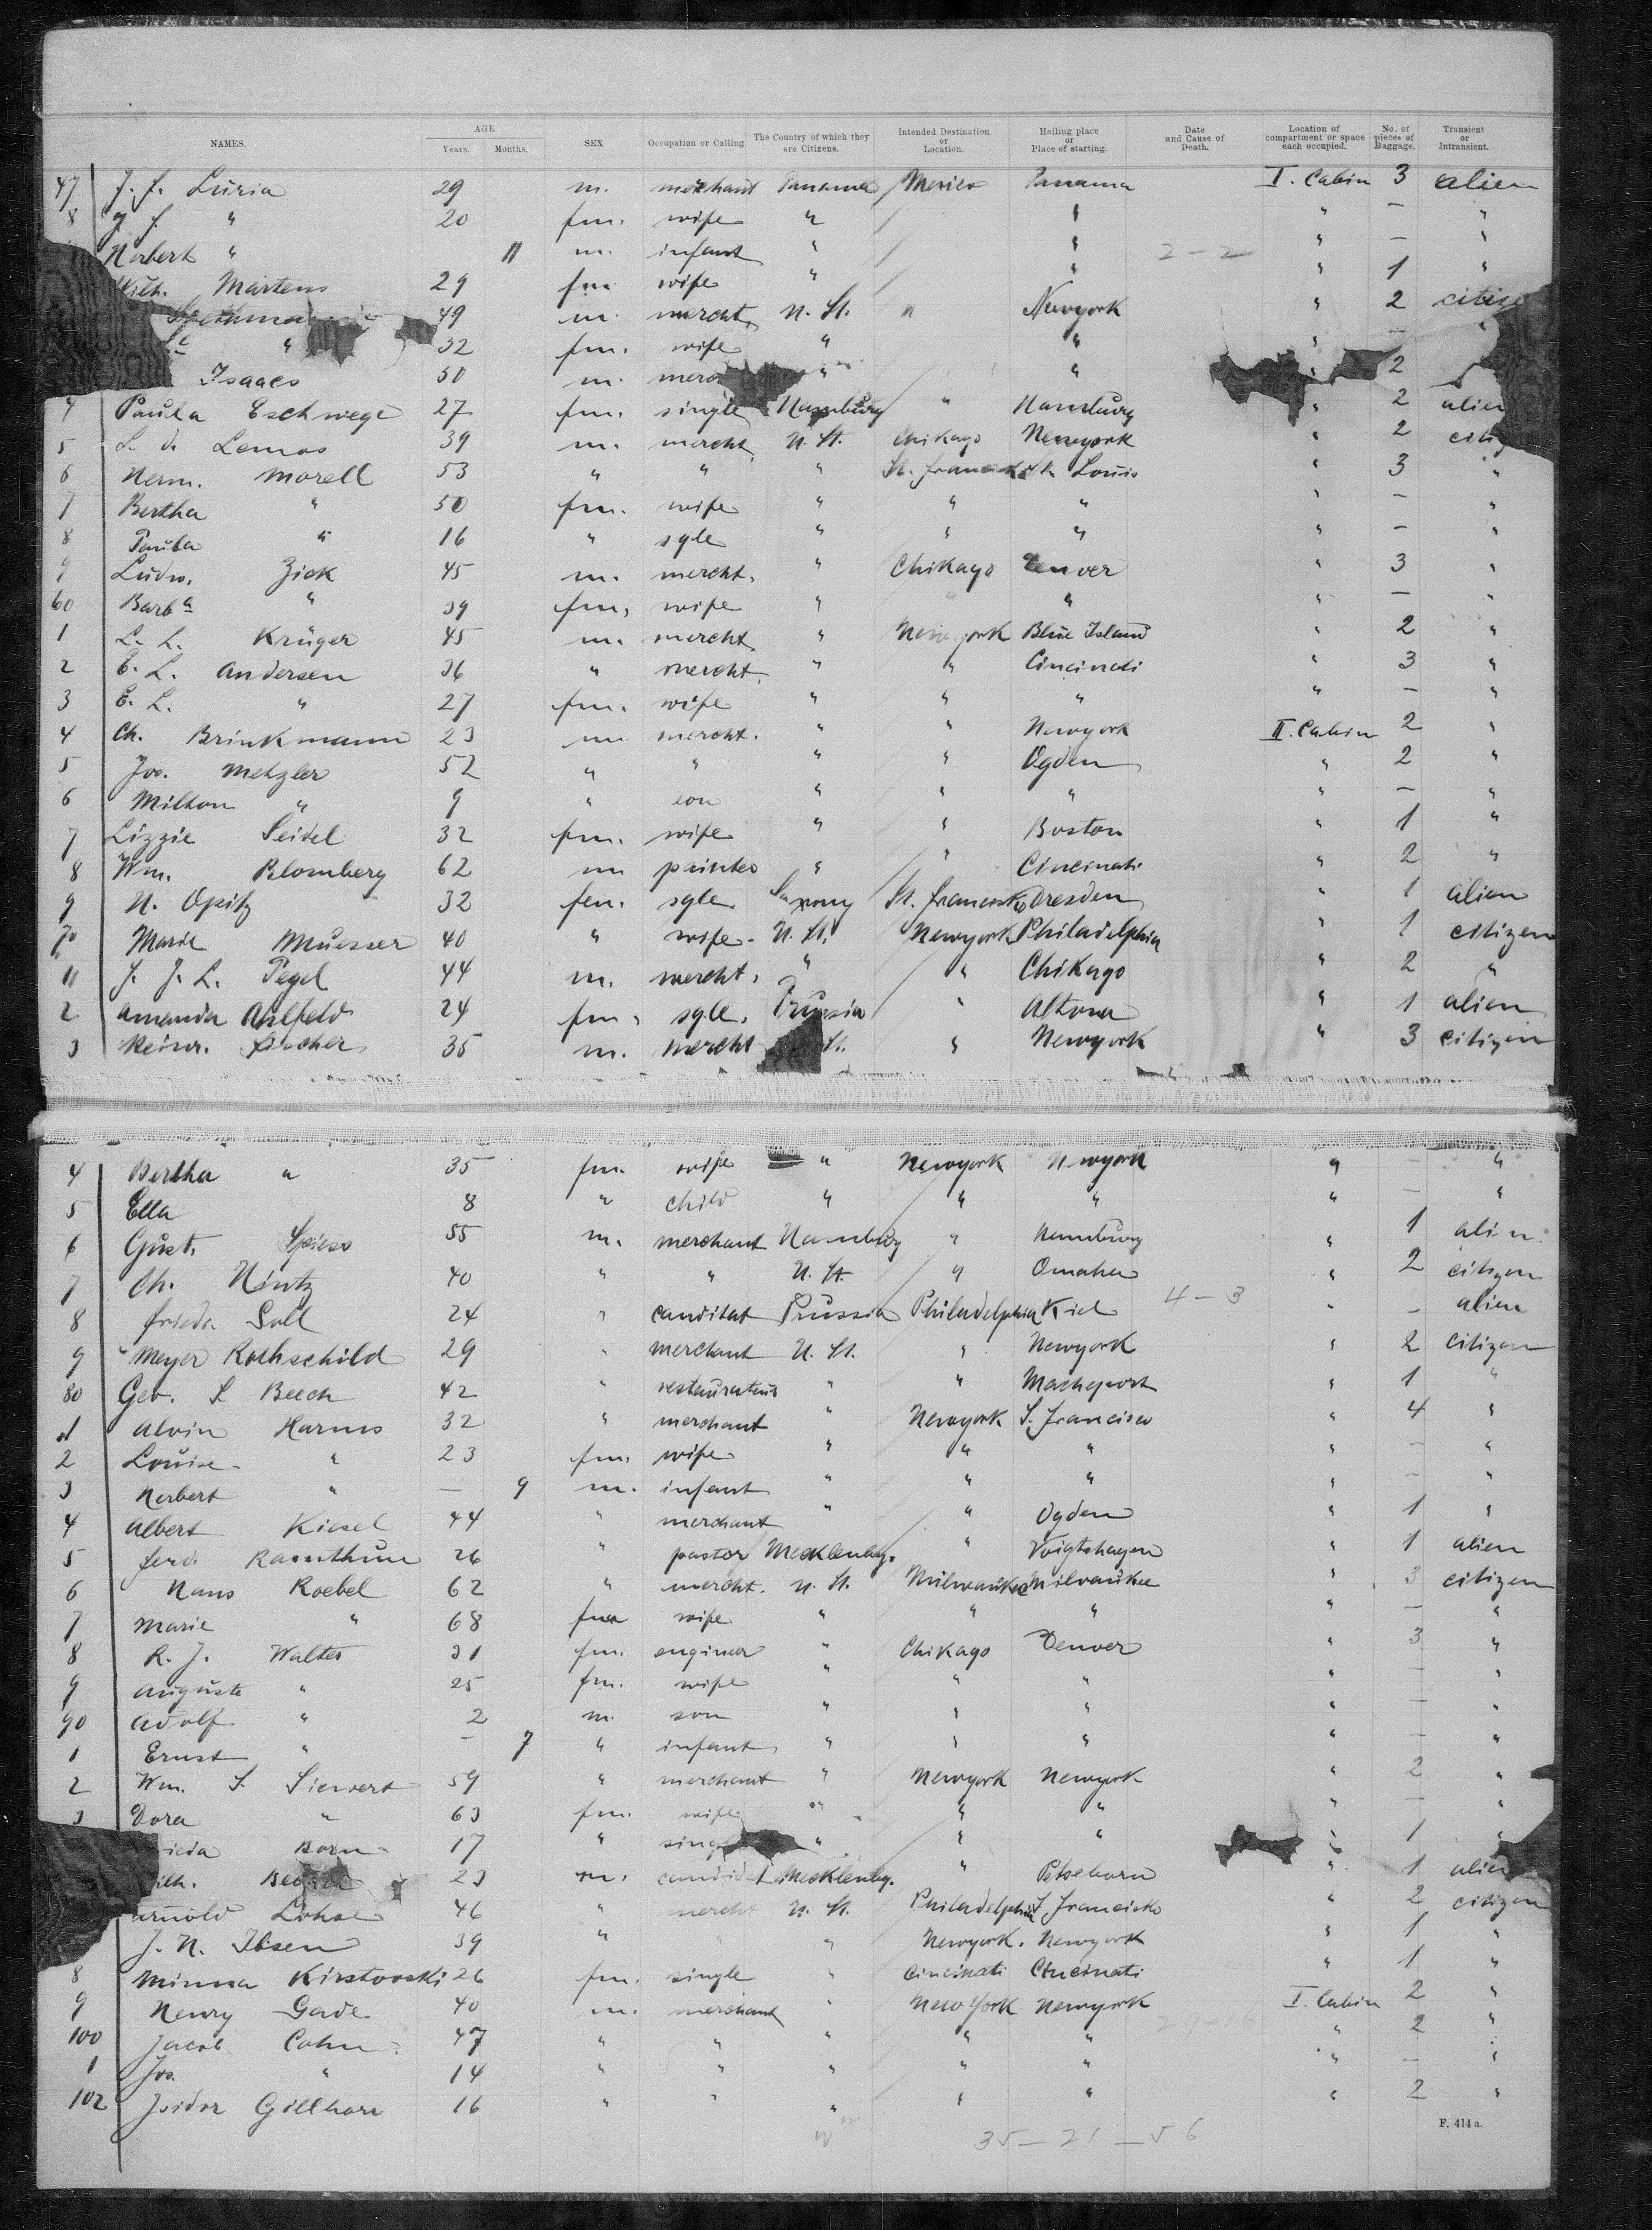 NAMES. AGE Years. Months. SEX Occupation or Calling. The Country of which they are Citizens. Intended Destination or Location. Hailing place or Place of starting. Date and Cause of Death. Location of compartment or space each occupied. No. of pieces of Baggage. Transient or Intransient.
47 J. J. Luria 29 m. merchant Panama Mexico Panama I. Cabin 3 alien
8 J. J. " 20 fm. wife " " " — "
Norbert " 11 m. infant " " 2-2 " — "
Wilh. Martens 29 fm wife " " " 1 "
49 m. mercht. U. St. " Newyork " 2 citize
" 32 fm. wife " " " — "
Isaacs 50 m. merc " " 2
4 Paula Eschwege 27 fm. single Hamburg " Hamburg " 2 alien
5 S. d. Lemos 39 m. mercht. U. St. Chikago Newyork " 2 citiz
6 Herm. Morell 53 " " " St. Francisko St. Louis " 3 "
7 Bertha " 50 fm. wife " " " " — "
8 Paula " 16 " sgle " " " " — "
9 Ludw. Zick 45 m. mercht. " Chikago Denver " 3 "
60 Barba " 39 fm. wife " " " " — "
1 L. L. Krüger 45 m. mercht. " New york Blue Island " 2 "
2 E. L. Andersen 36 " mercht. " " Cincinati " 3 "
3 E. L. " 27 fm. wife " " " " — "
4 Ch. Brinkmann 23 m. mercht. " " Newyork II. Cabin 2 "
5 Jos. Metzler 52 " " " " Ogden " 2 "
6 Milton " 9 " son " " " " — "
7 Lizzie Seidel 32 fm. wife " " Boston " 1 "
8 Wm. Blomberg 62 m painter " " Cincinati " 2 "
9 H. Opitz 32 fm. sgle Saxony St. Francisko Dresden " 1 alien
70 Marie Muesser 40 " wife U. St. Newyork Philadelphia " 1 citizen
11 J. J. L. Pegel 44 m. mercht. " " Chikago " 2 "
2 Amanda Ahlfeld 24 fm. sgle. Prussia " Altona " 1 alien
3 Heinr. Fischer 35 m. mercht St. " Newyork " 3 citizen
4 Bertha " 35 fm. wife " Newyork Newyork " — "
5 Ella 8 " child " " " " — "
6 Gust. Spiess 55 m. merchant Hamburg " Hamburg " 1 alien
7 Ch. Hintz 40 " " U. St. " Omaha " 2 citizen
8 Frieda Soll 24 " canditat Prussia Philadelphia Kiel 4-3 " — alien
9 Meyer Rothschild 29 " merchant U. St. " Newyork " 2 citizen
80 Geo. S Beech 42 " restaurateur " " " 1 "
1 Alvin Harms 32 " merchant " Newyork S. Francisco " 4 "
2 Louise " 23 fm. wife " " " " — "
3 Herbert " — 9 m. infant " " " " — "
4 Albert Kiesel 44 " merchant " " Ogden " 1 "
5 Ferd. 26 " pastor Mecklenbg. " Voigtshagen " 1 alien
6 Hans Roebel 62 " mercht. U. St. Milwaukee Milwaukee " 3 citizen
7 Marie " 68 fm wife " " " " — "
8 R. J. Walter 31 fm. engineer " Chikago Denver " 3 "
9 Auguste " 25 fm. wife " " " " — "
90 Adolf " 2 m. son " " " " — "
1 Ernst " — 7 " infant " " " " — "
2 Wm. S. Sievert 59 " merchant " Newyork Newyork " 2 "
3 Dora " 63 fm. wife " " " " — "
ieda Born 17 " singl " " " " 1 "
ilh. 23 m. candidat Mecklenbg. " " 1 alien
Arnold Lohse 46 " mercht U. St. Philadelphia S. Francisko " 2 citizen
J. N. Ibsen 39 " " " Newyork. Newyork " 1 "
8 Minna Kirstovski 26 fm. single " Cincinati Cincinati " 1 "
9 Henry Gade 40 m. merchant " New York Newyork I. Cabin 2 "
100 Jacob Cohn 47 " " " " " " 2 "
1 Jos. " 14 " " " " " " — "
102 Isidor Gillhorn 16 " " " " " " 2 "
35-21-56
F. 414 a.